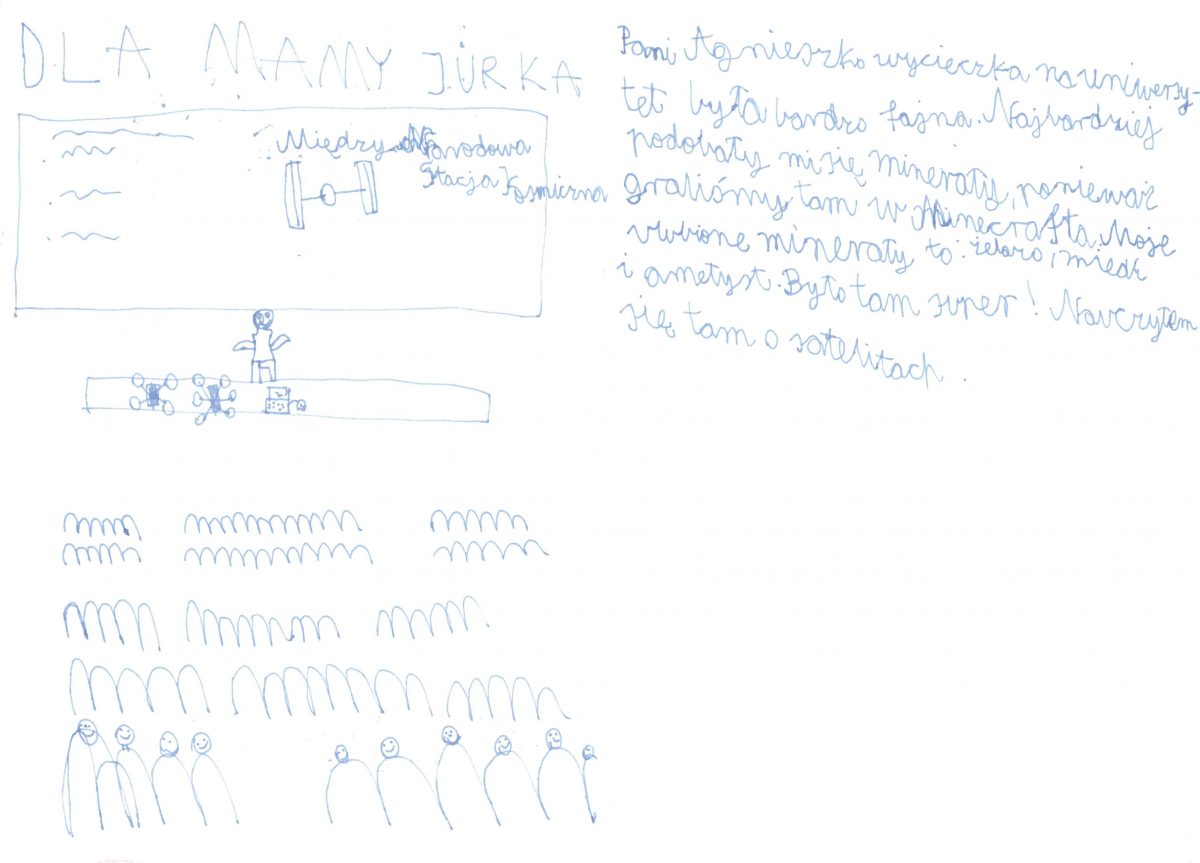 DLA MAMY JURKA
Międzynarodowa
Stacja Kosmiczna
Pani Agnieszko wycieczka na uniwersy-
tet była bardzo fajna. Najbardziej
podobały mi się minerały, ponieważ
graliśmy tam w Minecrafta. Moje
ulubione minerały to: żelazo, miedź
i ametyst. Było tam super! Nauczyłem
się tam o satelitach.